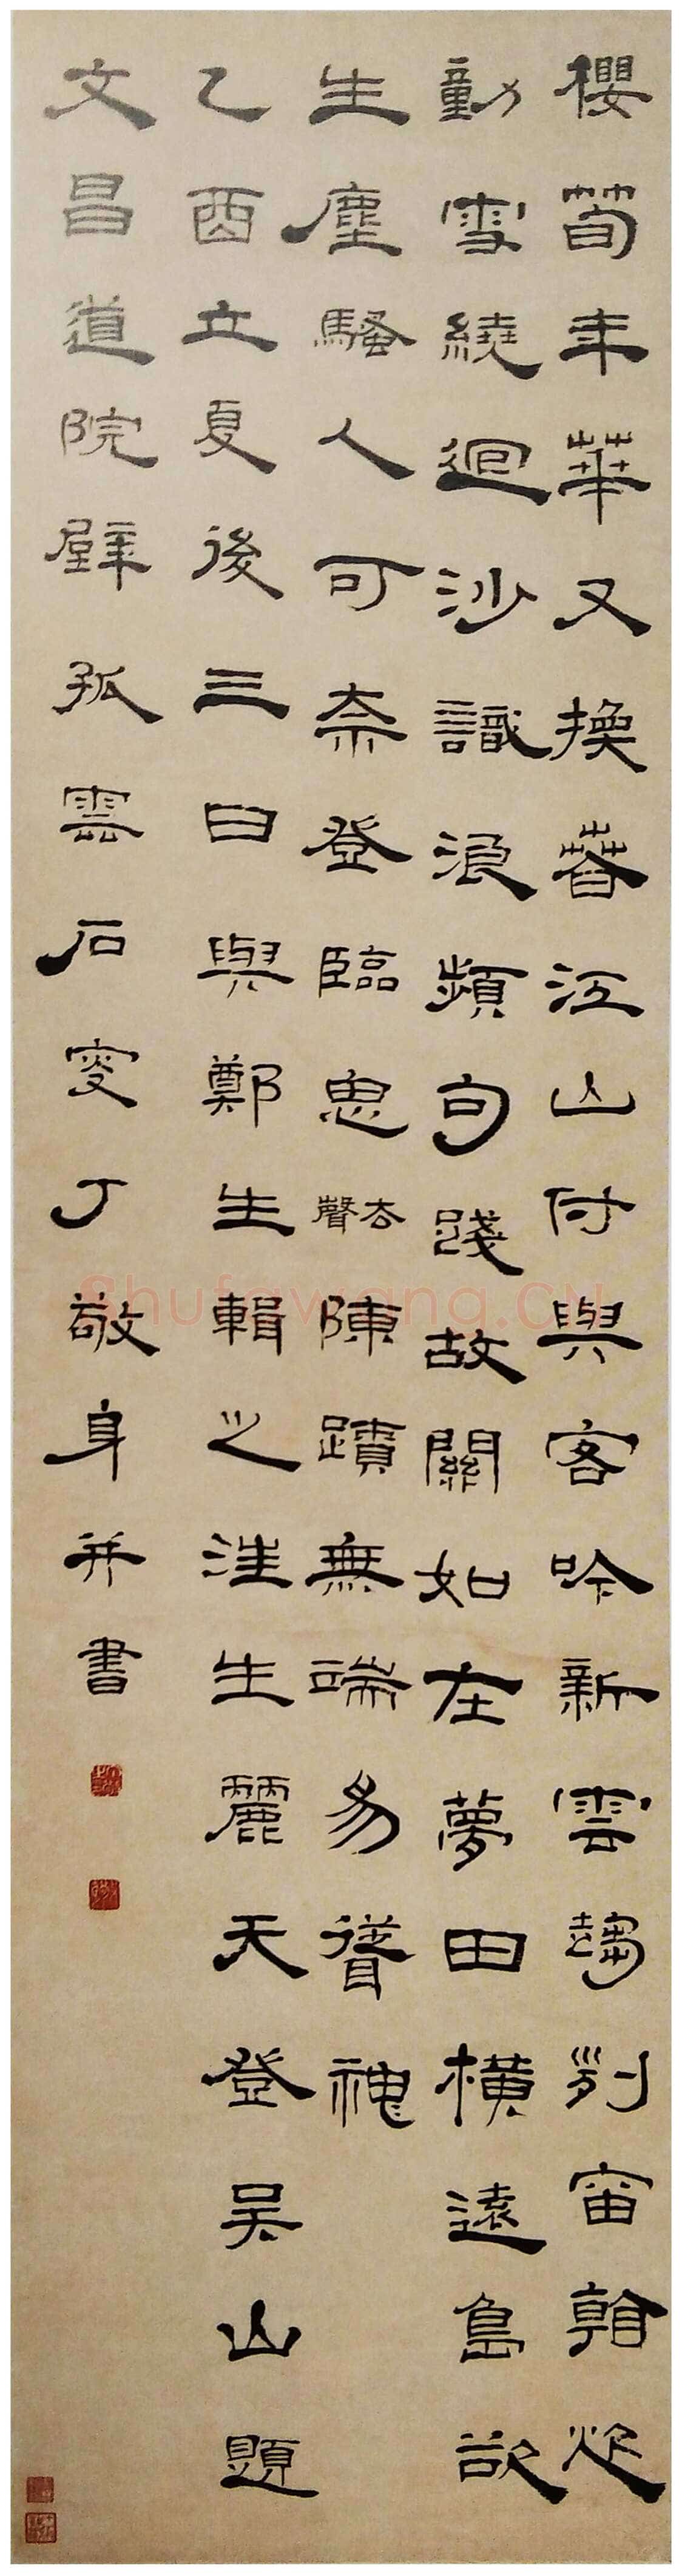 櫻筍年華又換萅江山付與客吟新雲趨列宙朝炊
動雪繞迴沙識浪頻句踐故關如在夢田橫遠島欲
生塵騷人可奈登臨思去聲陳蹟無端易聳神
乙酉立夏後三日與鄭生輯之汪生麗天登吳山題
文昌道院壁孤雲石叟丁敬身并書
Shufawang.cn